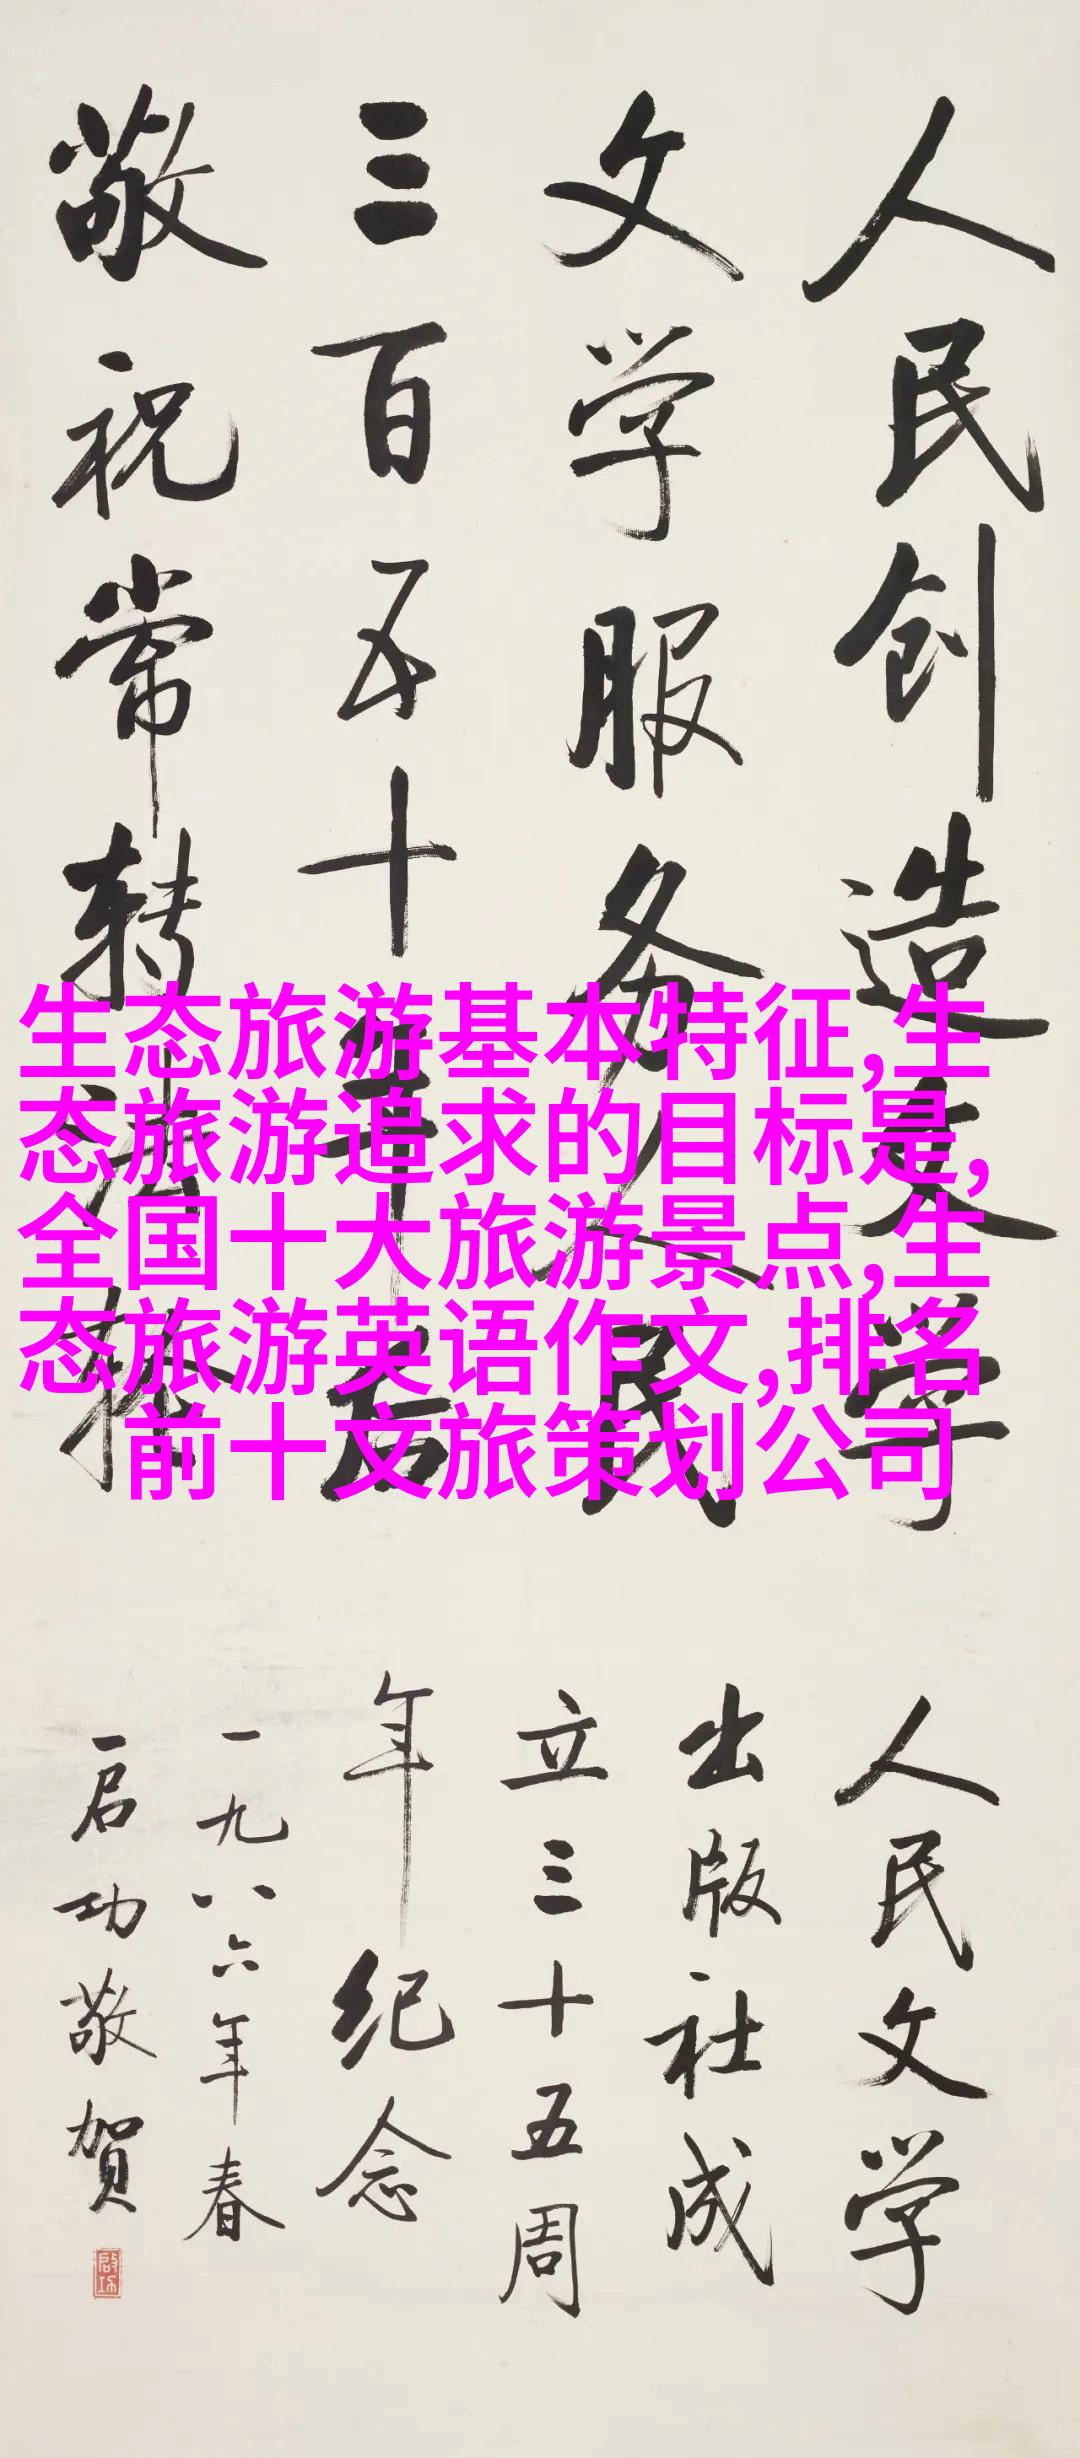 人民创造文学
文学服务人民
三百五十年后
敬祝常转法轮
生态旅游基本特征,生
态旅游追求的目标是,
全国十大旅游景点,生
态旅游英语作文,排名
前十文旅策划公司
人民文学
出版社成
立三十五周
年纪念
一九八六年春
启功敬贺
啟功